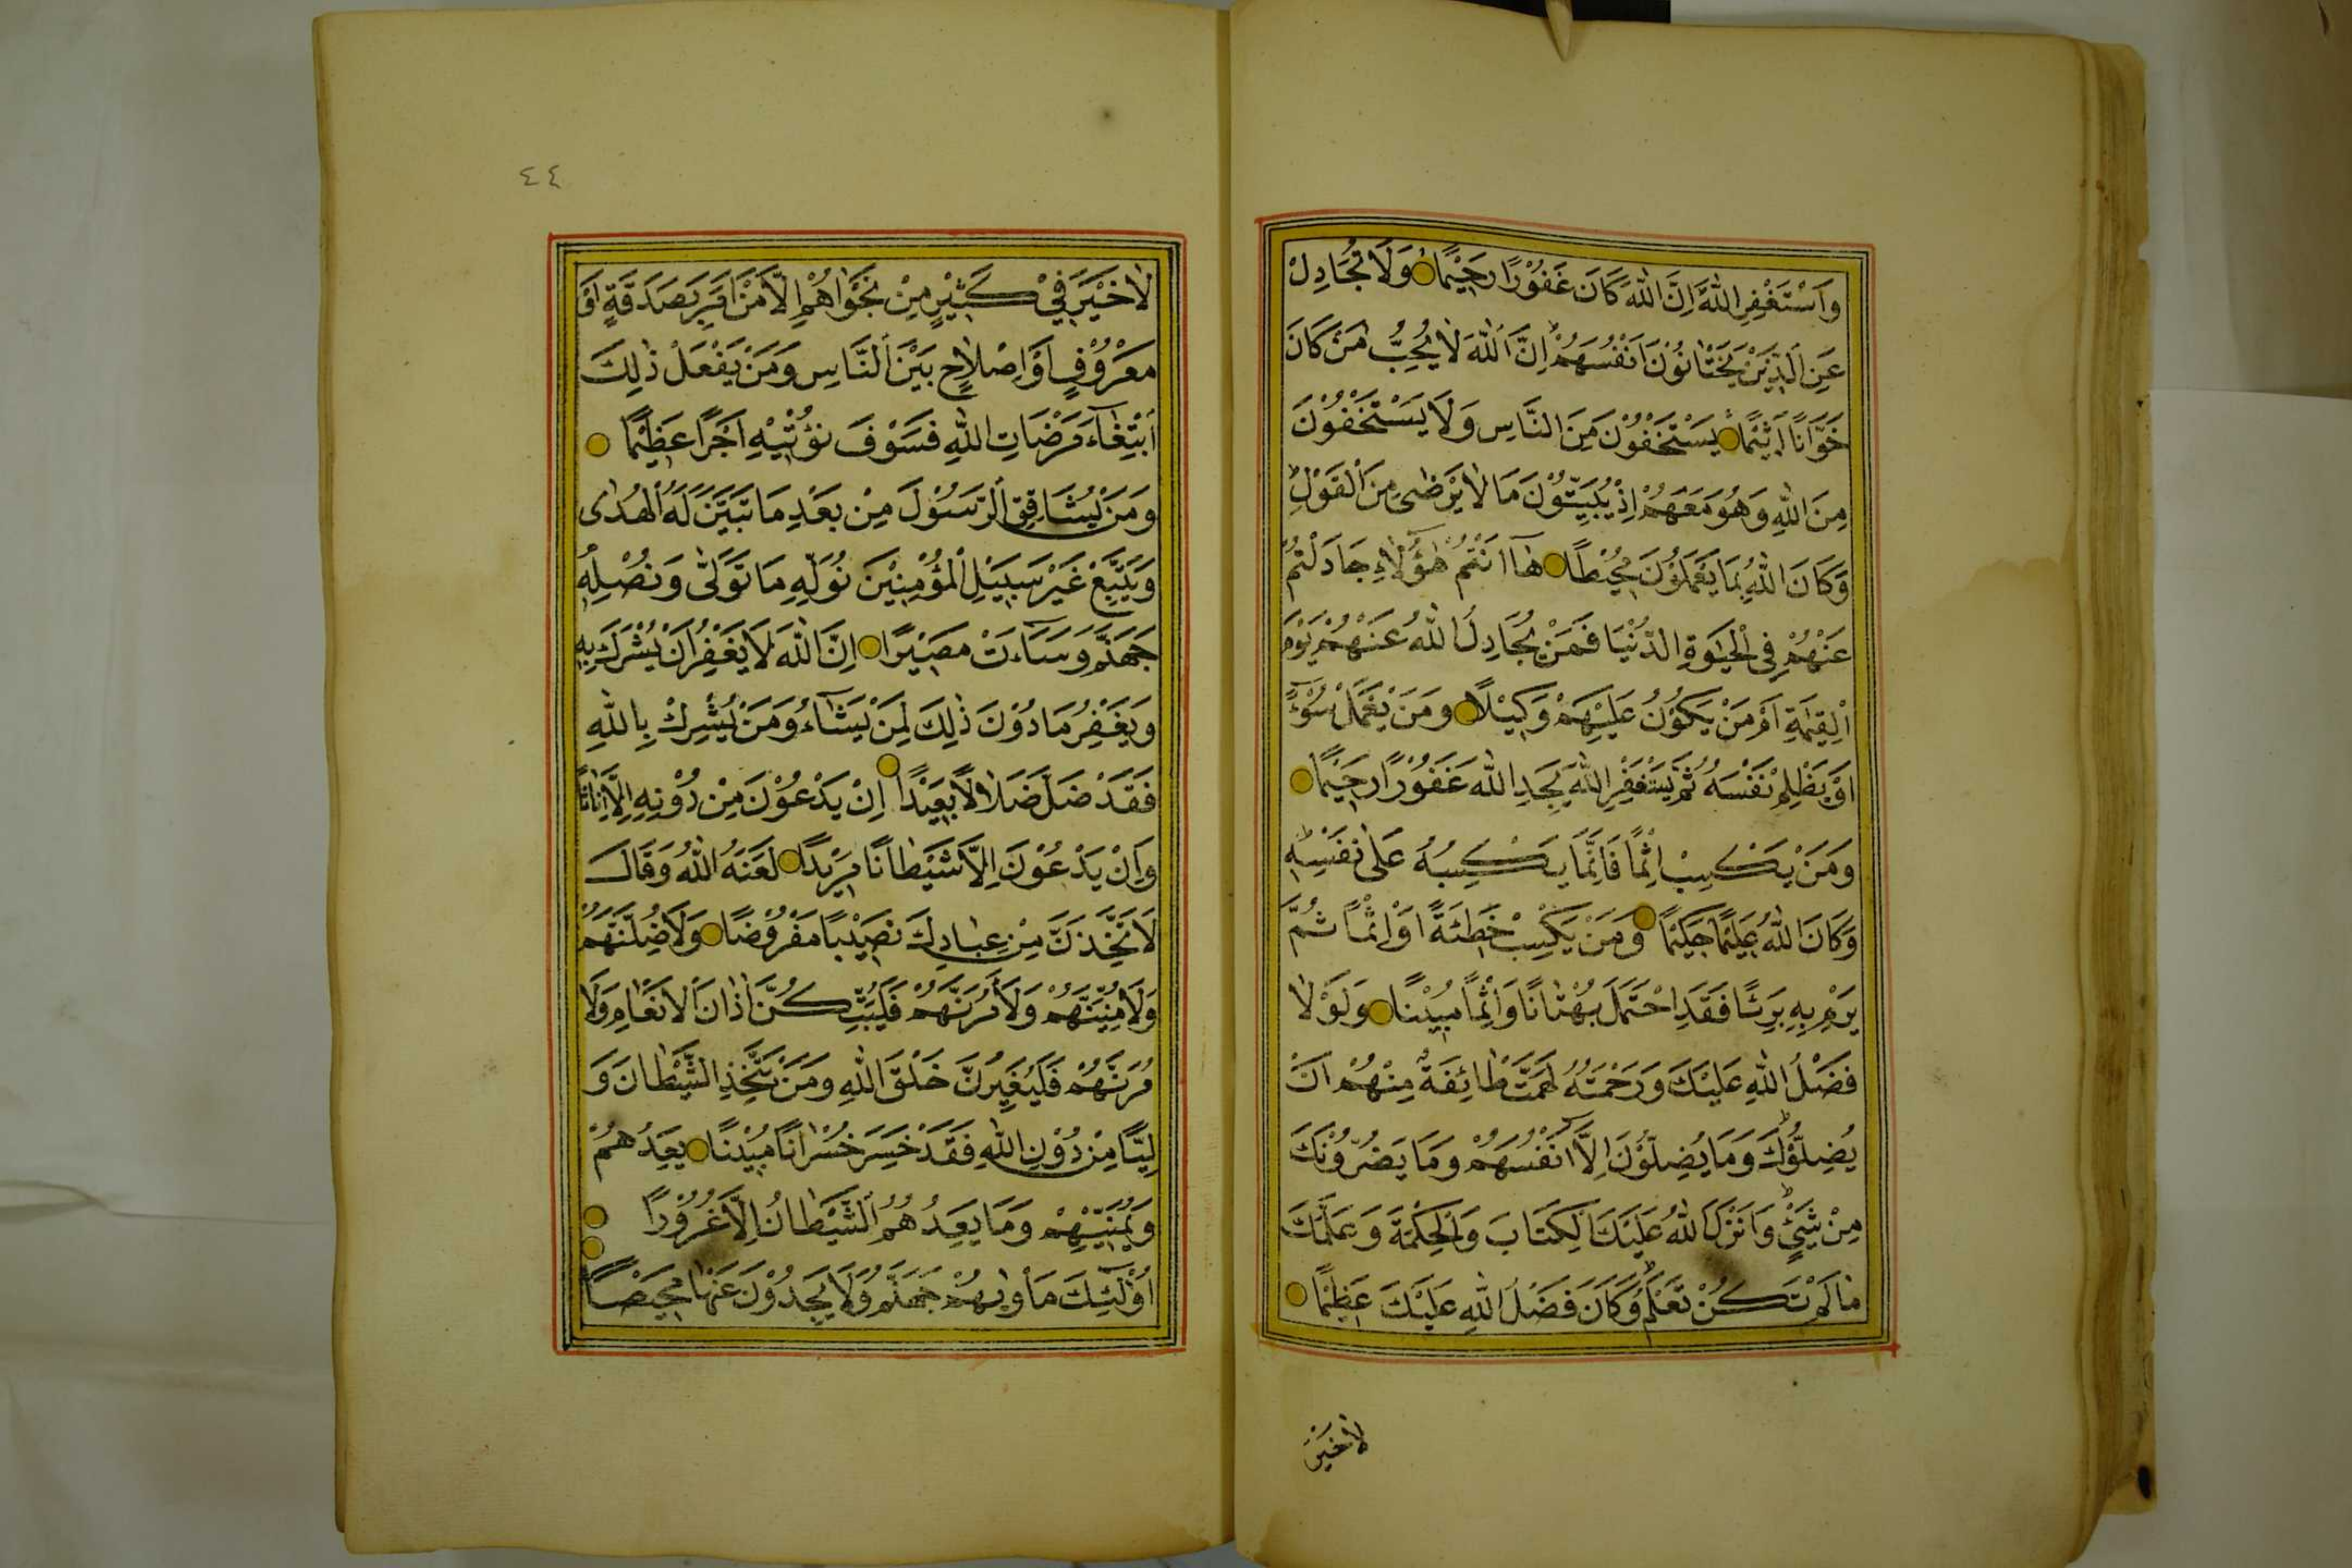 وَاَسْتَغْفِرِ اللّٰهَ اِنَّ اللّٰهَ كَانَ غَفُوْرًا رَحِيْمًا وَلَا تُجَادِلْ
عَنِ الَّذِيْنَ يَخْتَانُوْنَ اَنْفُسَهُمْ اِنَّ اللّٰهَ لَا يُحِبُّ مَنْ كَانَ
خَوَّانًا اَثِيْمًا يَسْتَخْفُوْنَ مِنَ النَّاسِ وَلَا يَسْتَخْفُوْنَ
مِنَ اللّٰهِ وَهُوَ مَعَهُمْ اِذْ يُبَيِّتُوْنَ مَا لَا يَرْضٰى مِنَ الْقَوْلِ
وَكَانَ اللّٰهُ بِمَا يَعْمَلُوْنَ مُحِيْطًا هَآ اَنْتُمْ هٰٓؤُلَاءِ جَادَلْتُمْ
عَنْهُمْ فِى الْحَيٰوةِ الدُّنْيَا فَمَنْ يُجَادِلُ اللّٰهَ عَنْهُمْ يَوْمَ
الْقِيٰمَةِ اَمْ مَنْ يَكُوْنُ عَلَيْهِمْ وَكِيْلًا وَمَنْ يَعْمَلْ سُوْٓءً
اَوْ يَظْلِمْ نَفْسَهُ ثُمَّ يَسْتَغْفِرِ اللّٰهَ يَجِدِ اللّٰهَ غَفُوْرًا رَحِيْمًا
وَمَنْ يَكْسِبْ اِثْمًا فَاِنَّمَا يَكْسِبُهُ عَلٰى نَفْسِهِ
وَكَانَ اللّٰهُ عَلِيْمًا حَكِيْمًا وَمَنْ يَكْسِبْ خَطِئَةً اَوْ اِثْمًا ثُمَّ
يَرْمِ بِهِ بَرِئًا فَقَدِ احْتَمَلَ بُهْتَانًا وَاِثْمًا مُبِيْنًا وَلَوْلَا
فَضْلُ اللّٰهِ عَلَيْكَ وَرَحْمَتُهُ لَهَمَّتْ طَائِفَةٌ مِنْهُمْ اَنْ
يُضِلُّوْكَ وَمَا يُضِلُّوْنَ اِلَّآ اَنْفُسَهُمْ وَمَا يَضُرُّوْنَكَ
مِنْ شَيْءٍ وَاَنْزَلَ اللّٰهُ عَلَيْكَ الْكِتَابَ وَالْحِكْمَةَ وَعَلَّمَكَ
مَا لَمْ تَكُنْ تَعْلَمُ وَكَانَ فَضْلُ اللّٰهِ عَلَيْكَ عَظِيْمًا
لَا خَيْرَ
٤٤
لَا خَيْرَ فِيْ كَثِيْرٍ مِنْ نَجْوٰاهُمْ اِلَّا مَنْ اَمَرَ بِصَدَقَةٍ اَوْ
مَعْرُوْفٍ اَوْ اِصْلَاحٍ بَيْنَ النَّاسِ وَمَنْ يَفْعَلْ ذٰلِكَ
ابْتِغَآءَ مَرْضَاتِ اللّٰهِ فَسَوْفَ نُؤْتِيْهِ اَجْرًا عَظِيْمًا
وَمَنْ يُشَاقِقِ الرَّسُوْلَ مِنْ بَعْدِ مَا تَبَيَّنَ لَهُ الْهُدٰى
وَيَتَّبِعْ غَيْرَ سَبِيْلِ الْمُؤْمِنِيْنَ نُوَلِّهِ مَا تَوَلّٰى وَنُصْلِهِ
جَهَنَّمَ وَسَآءَتْ مَصِيْرًا اِنَّ اللّٰهَ لَا يَغْفِرُ اَنْ يُشْرَكَ بِهِ
وَيَغْفِرُ مَا دُوْنَ ذٰلِكَ لِمَنْ يَشَآءُ وَمَنْ يُشْرِكْ بِاللّٰهِ
فَقَدْ ضَلَّ ضَلَالًا بَعِيْدًا اِنْ يَدْعُوْنَ مِنْ دُوْنِهِ اِلَّا اِنَاثًا
وَاِنْ يَدْعُوْنَ اِلَّا شَيْطَانًا مَرِيْدًا لَعَنَهُ اللّٰهُ وَقَالَ
لَاَتَّخِذَنَّ مِنْ عِبَادِكَ نَصِيْبًا مَفْرُوْضًا وَلَاُضِلَّنَّهُمْ
وَلَاُمَنِّيَنَّهُمْ وَلَاٰمُرَنَّهُمْ فَلَيُبَتِّكُنَّ اٰذَانَ الْاَنْعَامِ وَلَاٰ
مُرَنَّهُمْ فَلَيُغَيِّرُنَّ خَلْقَ اللّٰهِ وَمَنْ يَتَّخِذِ الشَّيْطَانَ وَ
لِيًّا مِنْ دُوْنِ اللّٰهِ فَقَدْ خَسِرَ خُسْرَانًا مُبِيْنًا يَعِدُهُمْ
وَيُمَنِّيْهِمْ وَمَا يَعِدُهُمُ الشَّيْطَانُ اِلَّا غُرُوْرًا
اُولٰٓئِكَ مَأْوٰيهُمْ جَهَنَّمُ وَلَا يَجِدُوْنَ عَنْهَا مَحِيْصًا